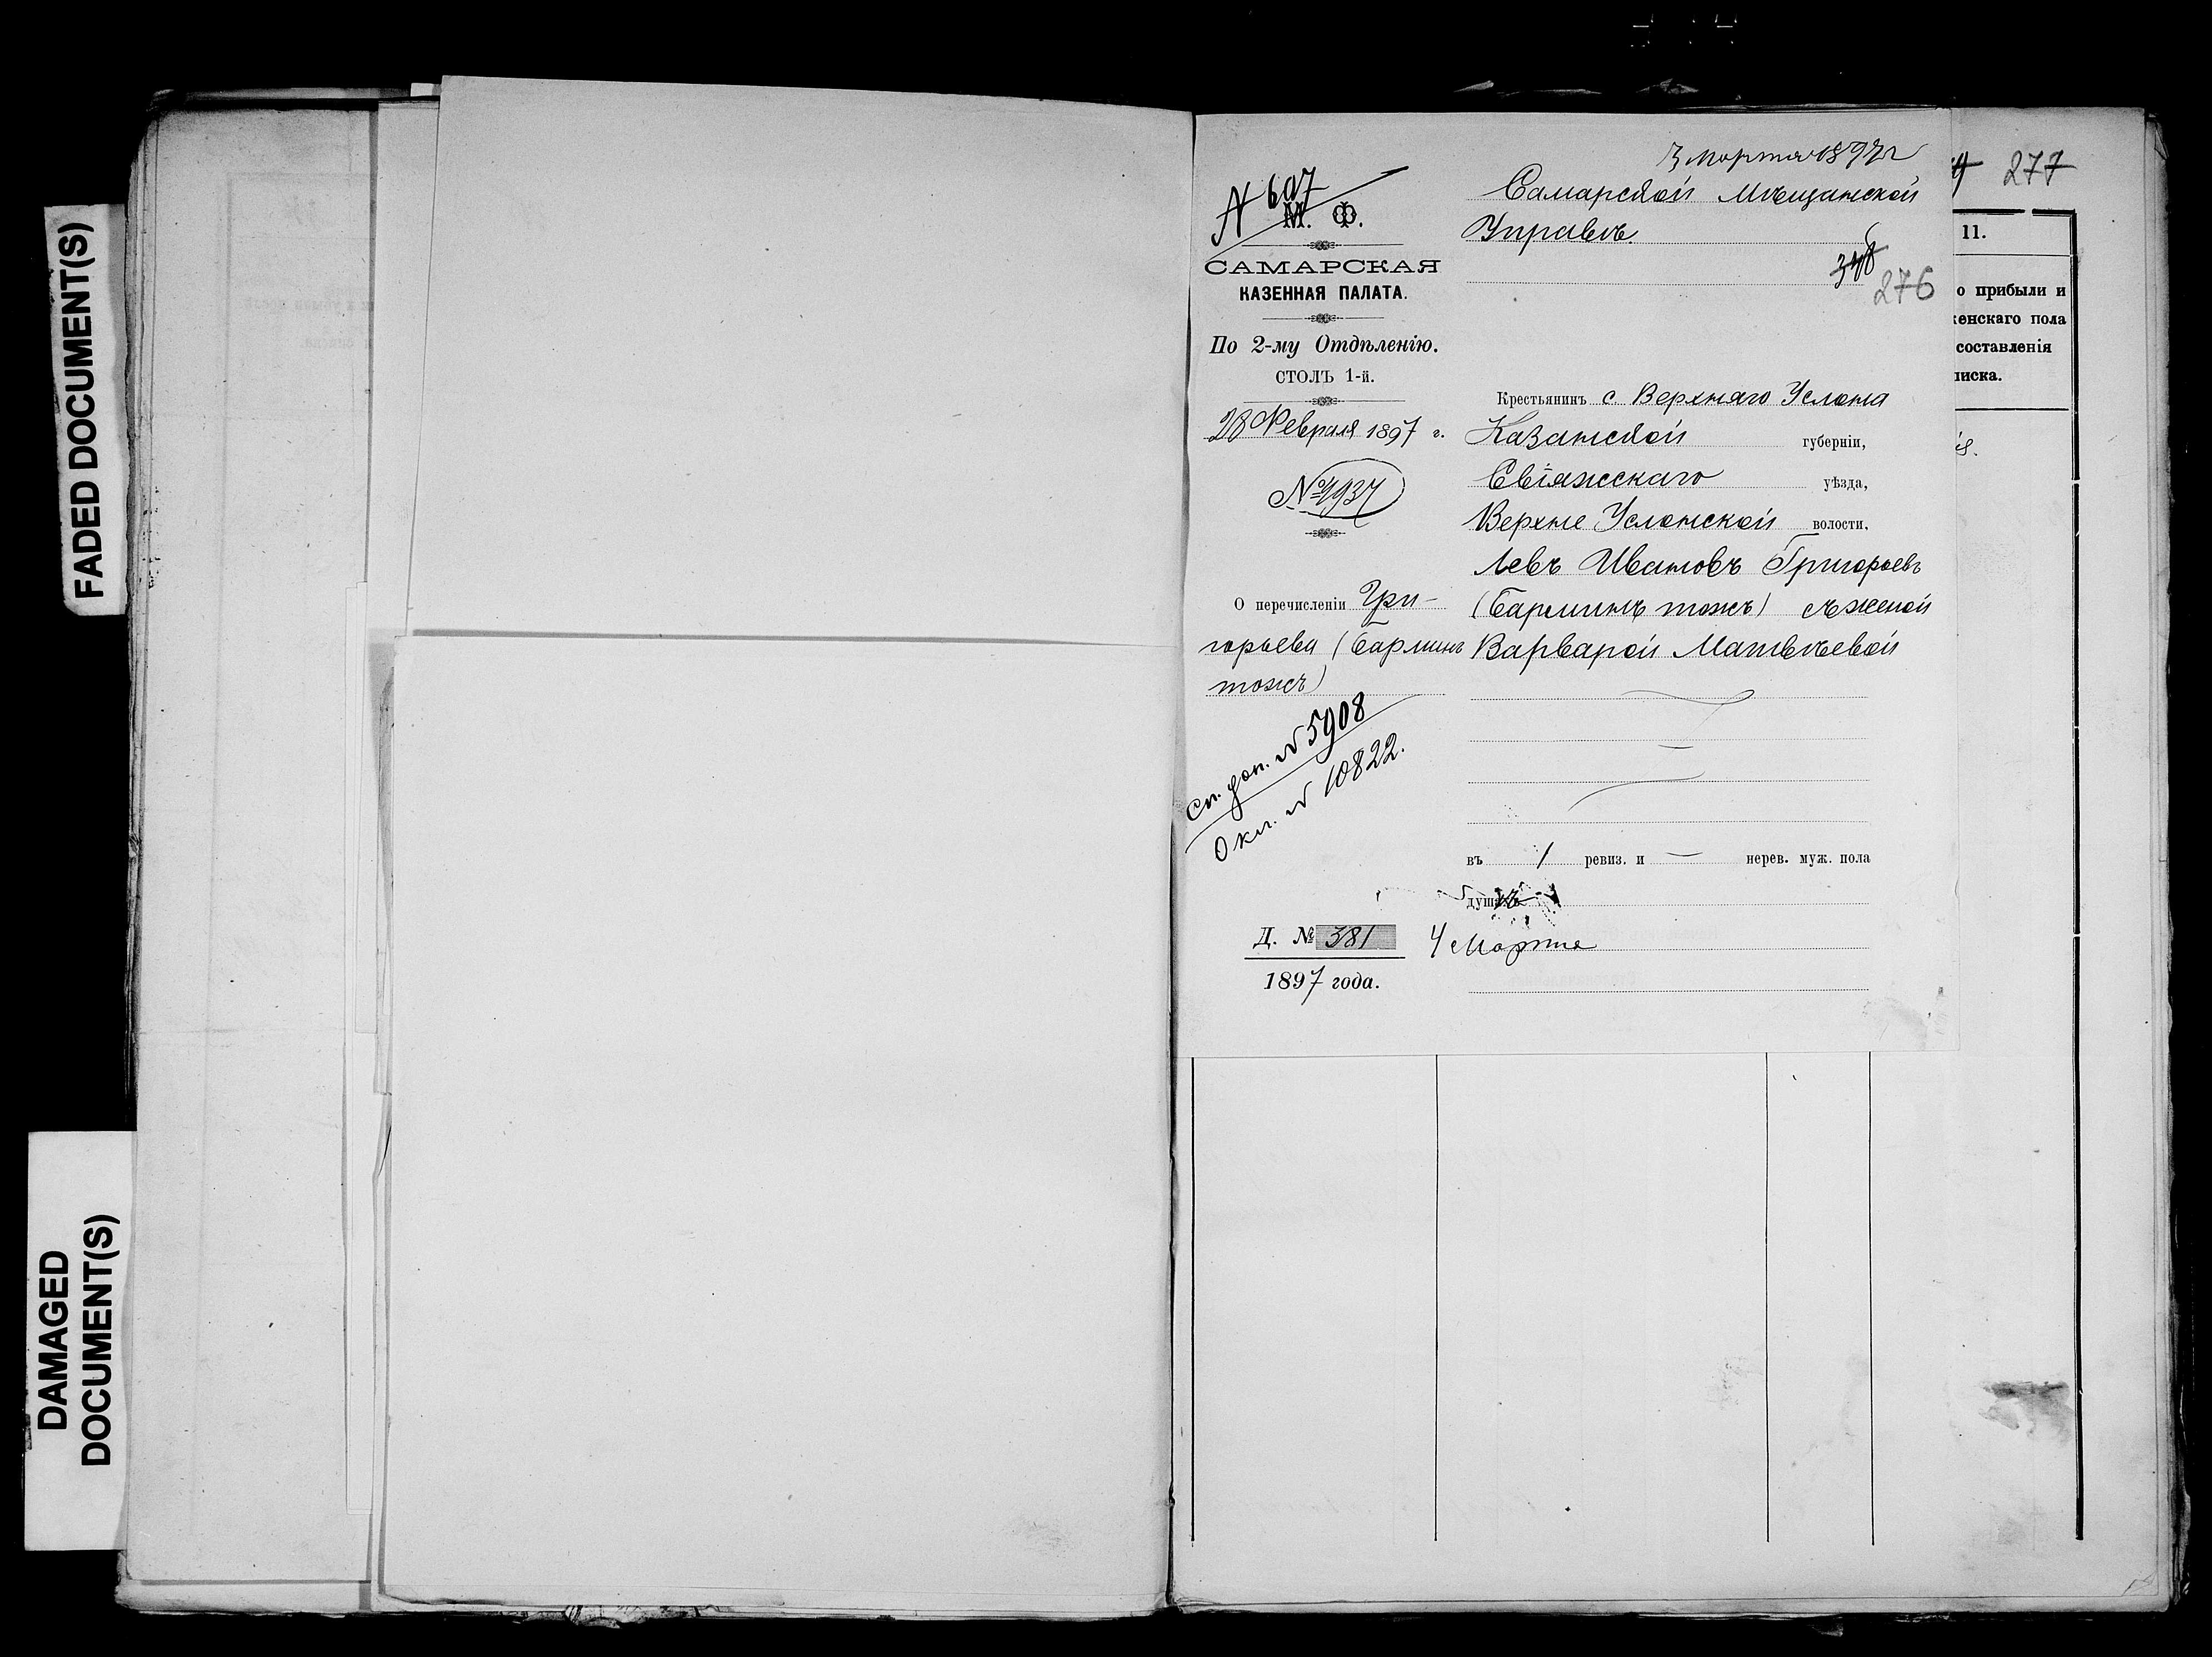 FADED DOCUMENT(S)
DAMAGED
DOCUMENT(S)
N 607
М. Ф.
САМАРСКАЯ
КАЗЕННАЯ ПАЛАТА.
По 2-му Отдѣленію.
СТОЛЪ 1-й.
28 Февраля 1897 г.
О перечисленіи Гри-
горьева (Барминъ
тожъ)
Сп. доп. № 5908
Окл. № 10822.
Д. № 381
1897 года.
3 Марта 1897 г
Самарской Мѣщанской
Управѣ.
276
Крестьянинъ с. Верхняго Услона
Казанской губерніи,
Свіяжскаго уѣзда,
Верхне Услонской волости,
Левъ Ивановъ Григорьевъ
(Барминъ тожъ) съ женой
Варварой Матвѣевой
въ 1 ревиз. и — нерев. муж. пола
4 Марта
277
11.
о прибыли и
женскаго пола
составленія
писка.